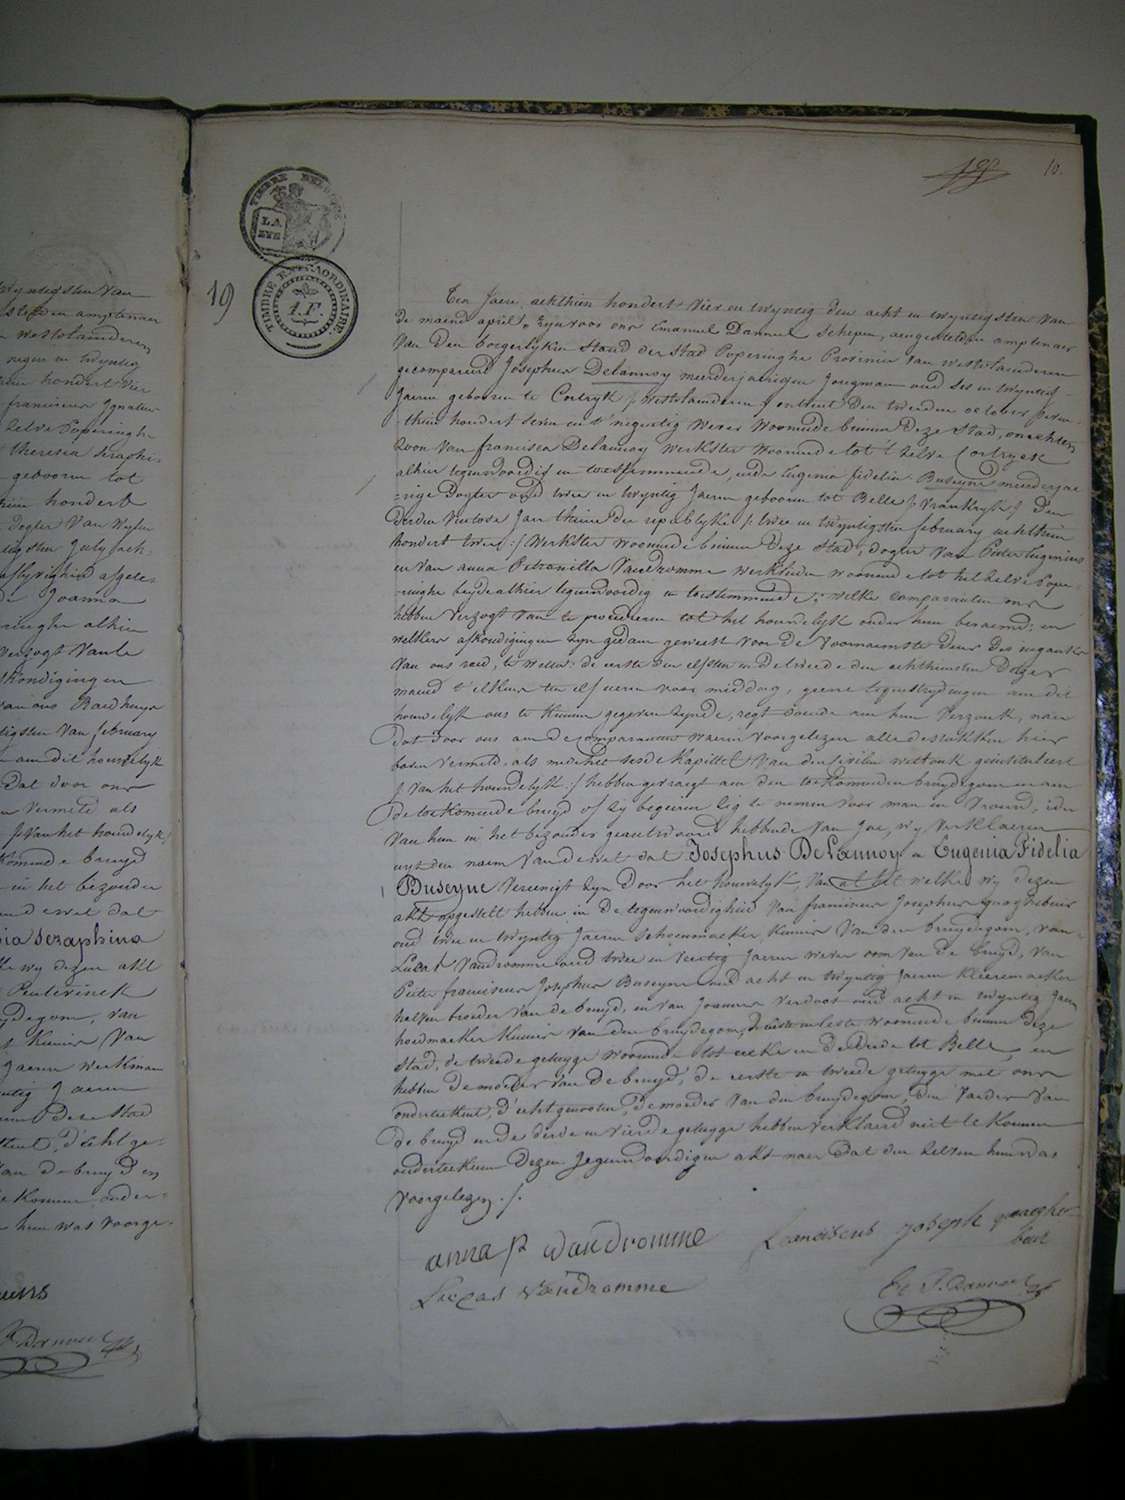 Wyntigsten van
westvlaenderen
hondert vier
franciscus Ignatius
zelve Poperinghe
theresia seraphi-
gebooren tot
hondert
dogter van
July
Joanna
alhier
verzogt van te
kondigingen
van ons Raedhuys
tigsten van february
aen dit houwelyk
dat door ons
vermeld als
van het houwelyk
komende bruyd
in het bezonder
en dewet dat
seraphina
wy dezen akt
bruydegom, van
kunis van
Jaeren werkman
Jaeren
deze stad
d'echtge-
van de bruyd en
konnen onder-
hun was voorge-
10.
TIMBRE
LA
TIMBRE EXTRAORDINAIRE
1.F.
19
Ten Jaere achthien hondert vier en twyntig den acht en twyntigsten van
de maend april, zyn voor ons Emanuel Schepen, aengestelden amptenaer
van den borgerlyken stand der stad Poperinghe Provincie van westvlaenderen
gecompareerd Josephus Delannoy meerderjaerigen Jongman oud ses en twyntig
Jaeren gebooren te Cortryk (westvlaenderen) ontrent den tweeden october seven-
thien hondert seven en t'negentig wever woonende binnen deze stad, onechten
zoon van francisca Delannoy werkster woonende tot t'zelve Cortryck
alhier tegenwoordig en toestemmende, ende Eugenia fidelia Buseyne meerderjae-
rige dogter oud twee en twyntig Jaeren gebooren tot Belle (vrankryk) den
derden ventose Jaer thien der republyke (twee en twyntigsten february achthien
hondert twee) werkster woonende binnen deze stad, dogter van Pieter Eugenius
en van anna Petronilla Vandromme werklieden woonende tot het zelve Pope-
ringhe beyde alhier tegenwoordig en toestemmende; welke comparanten ons
hebben verzogt van te procederen tot het houwelyk onder hun beraemd; en
welkers afkondigingen zyn gedaen geweest voor de voornaemste deur des ingancks
van ons raed, te weten: de eerste den elfsten en de tweede den achthiensten dezer
maend t'elkens ten elf ueren voor middag, geene tegenstrydingen aen dit
houwelyk ons te kennen gegeven zynde, regt doende aen hun verzoek, naer
dat door ons aen de comparanten waeren voorgelezen alle de stukken hier
boven vermeld, als mede het sesde kapittel van den civilen wetboek geintituleert
(van het houwelyk) hebben gevraegt aen den toekomenden bruydegom en aen
de toekomende bruyd of zy begeeren zig te nemen voor man en vrouw; ider
van hun in het bezonder geantwoord hebbende van Jae, wy verklaeren
uyt den naem van de wet dat Josephus DeLannoy en Eugenia Fidelia
Buseyne vereenigt zyn door het houwelyk, van al het welke wy dezen
akt opgestelt hebben in de tegenwoordigheid van franciscus Josephus quaghebeur
oud twee en twyntig Jaeren schoenmaeker, kennis van den bruydegom, van
Lucas Vandromme oud twee en veertig Jaeren wever oom van de bruyd, van
Pieter franciscus Josephus Buseyne oud acht en twyntig Jaeren kleermaeker
halven broeder van de bruyd, en van Joannes verdoot oud acht en twyntig Jaer
hoedmaeker kennis van den bruydegom, d'eerste en leste woonende binnen deze
stad, de tweede getuyge woonende tot en de derde tot Belle, en
hebben de moeder van de bruyd, de eerste en tweede getuyge met ons
onderteekent, d'echtgenooten, de moeder van den bruydegom, den vader van
de bruyd en de derde en vierde getuyge hebben verklaerd niet te konnen
onderteekenen dezen tegenwoordigen akt naer dat den zelven hun was
voorgelezen ./.
anna p vandromme
Franciscus Joseph quaeghe-
beur
Lucas Vandromme